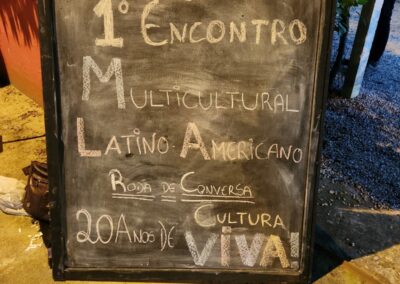 1º ENCONTRO
MULTICULTURAL
LATINO-AMERICANO
RODA DE CONVERSA
20 ANOS DE CULTURA
VIVA!